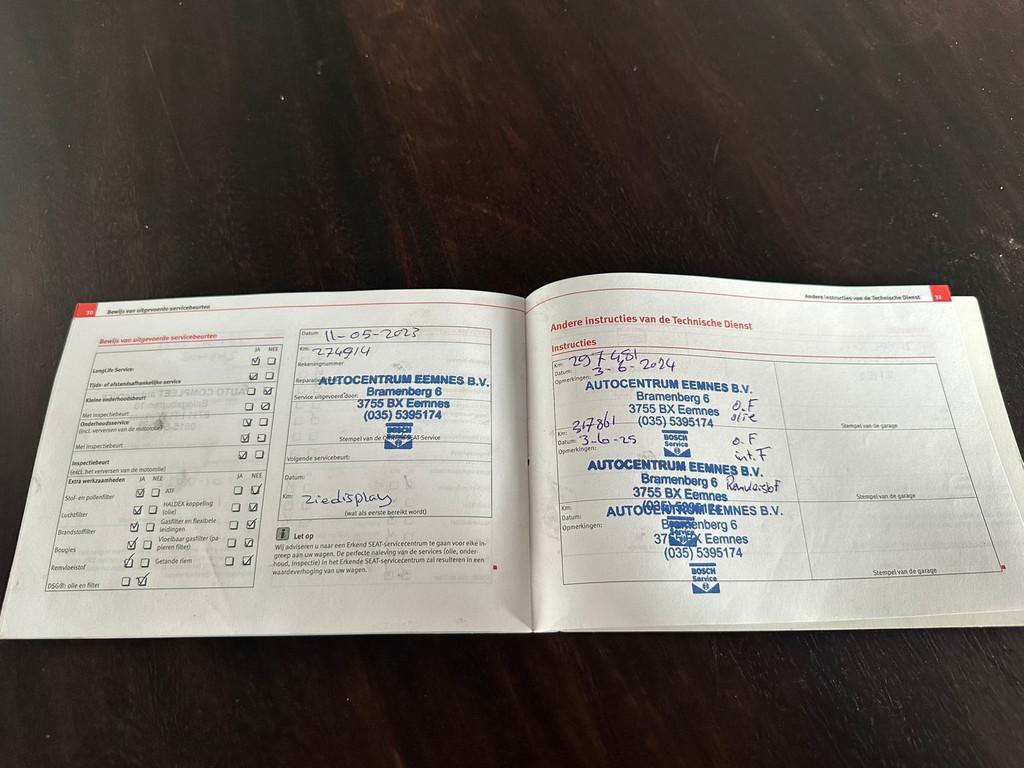 30 Bewijs van uitgevoerde servicebeurten
Bewijs van uitgevoerde servicebeurten
JA NEE
LongLife Service:
Tijds- of afstandsafhankelijke service
Kleine onderhoudsbeurt
Met Inspectiebeurt
Onderhoudsservice
(incl. verversen van de motorolie)
Met Inspectiebeurt
Inspectiebeurt
(excl. het verversen van de motorolie)
Extra werkzaamheden JA NEE JA NEE
Stof- en pollenfilter ATF
Luchtfilter HALDEX koppeling (olie)
Brandstoffilter Gasfilter en flexibele leidingen
Bougies Vloeibaar gasfilter (papieren filter)
Remvloeistof Getande riem
DSG®: olie en filter
Datum: 11-05-2023
Km: 274914
Rekeningnummer
Service uitgevoerd door:
AUTOCENTRUM EEMNES B.V.
Bramenberg 6
3755 BX Eemnes
(035) 5395174
Stempel van de
Volgende servicebeurt:
Datum:
Km: Zie display
(wat als eerste bereikt wordt)
i Let op
Wij adviseren u naar een Erkend SEAT-servicecentrum te gaan voor elke in-
greep aan uw wagen. De perfecte naleving van de services (olie, onder-
houd, inspectie) in het Erkende SEAT-servicecentrum zal resulteren in een
waardeverhoging van uw wagen.
Andere instructies van de Technische Dienst 31
Andere instructies van de Technische Dienst
Instructies
Km: 297481
Datum: 3-6-2024
Opmerkingen:
AUTOCENTRUM EEMNES B.V.
Bramenberg 6
3755 BX Eemnes
(035) 5395174
BOSCH
Service
O.F
olie
Stempel van de garage
Km: 317861
Datum: 3-6-25
Opmerkingen:
O.F
int.F
AUTOCENTRUM EEMNES B.V.
Bramenberg 6
3755 BX Eemnes
Stempel van de garage
Km:
Datum:
Opmerkingen:
AUTOCENTRUM EEMNES B.V.
Bramenberg 6
Eemnes
(035) 5395174
BOSCH
Service
Stempel van de garage